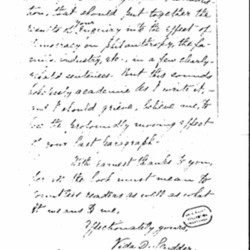 tion, that should put together the
your
results of Inquiry into the effect of
democracy on philanthropy, the fa-
mily, industry, etc., in a few clearly-
worded sentences. But this sounds
hopelessly academic as I write it,—
and I should grieve, believe me, to
lose the profoundly moving effect
of your last paragraph.
With earnest thanks to you,
for all the book must mean to
countless readers as well as what
it means to me.
Affectionately yours,
Vida D. Scudder